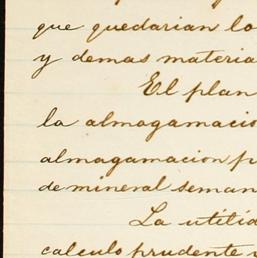 que quedarian lo
y demas materia
El plan
la almagamacio
almagamacion
de mineral seman
La utilid
calculo prudente